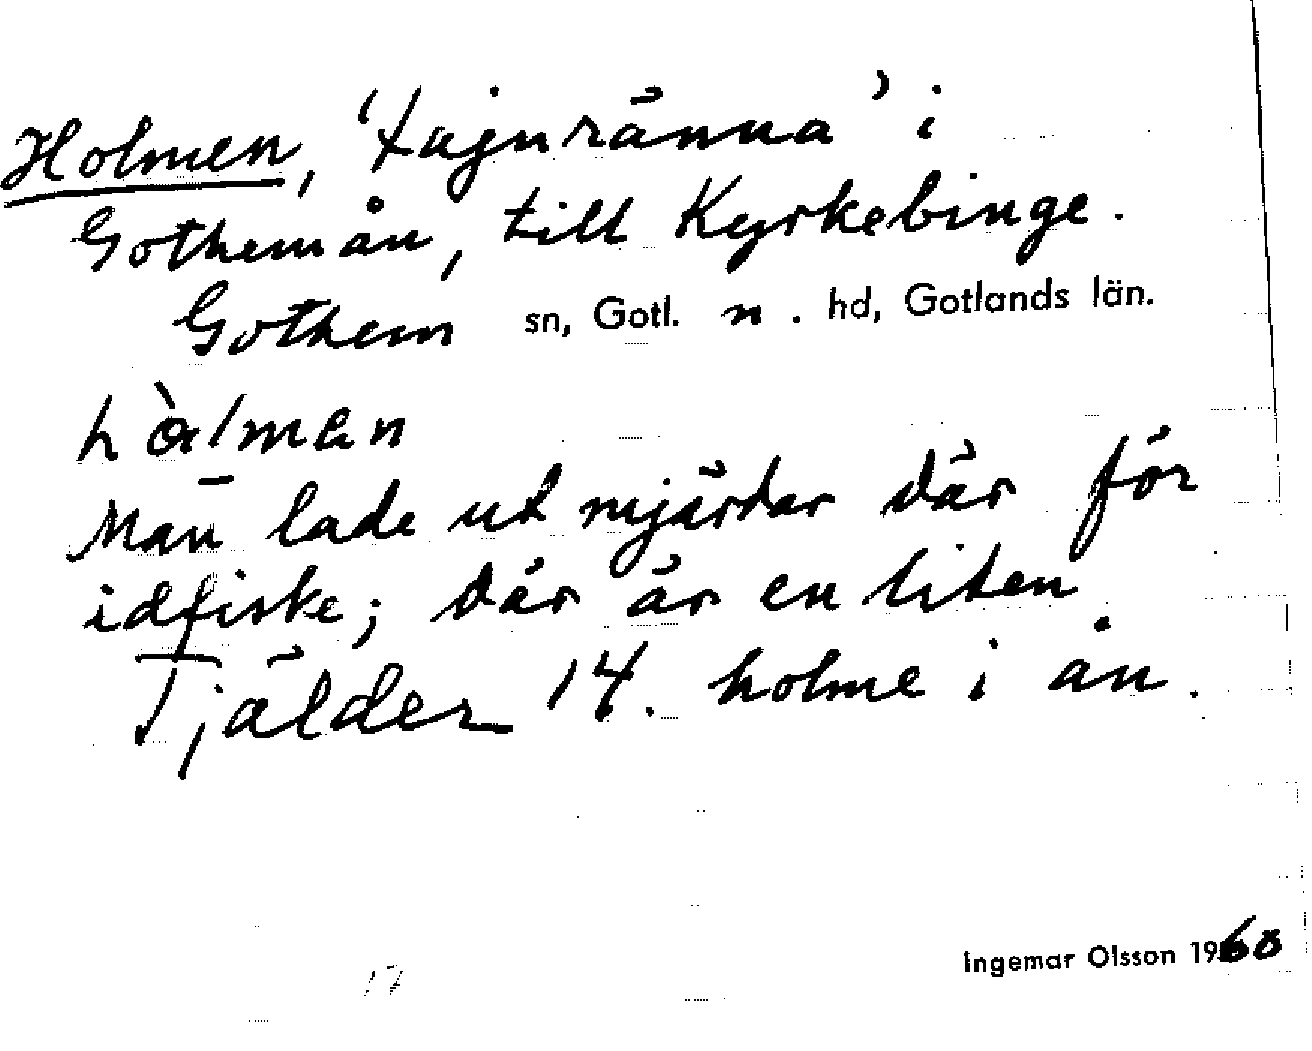 Holmen, 'tajnränna' i
Gothemån, till Kyrkebinge.
Gothem sn, Gotl. n. hd, Gotlands län.
hòlman
Man lade ut mjärdar där för
idfiske; där är en liten
Tjälder 14. holme i ån.
Ingemar Olsson 1960
17